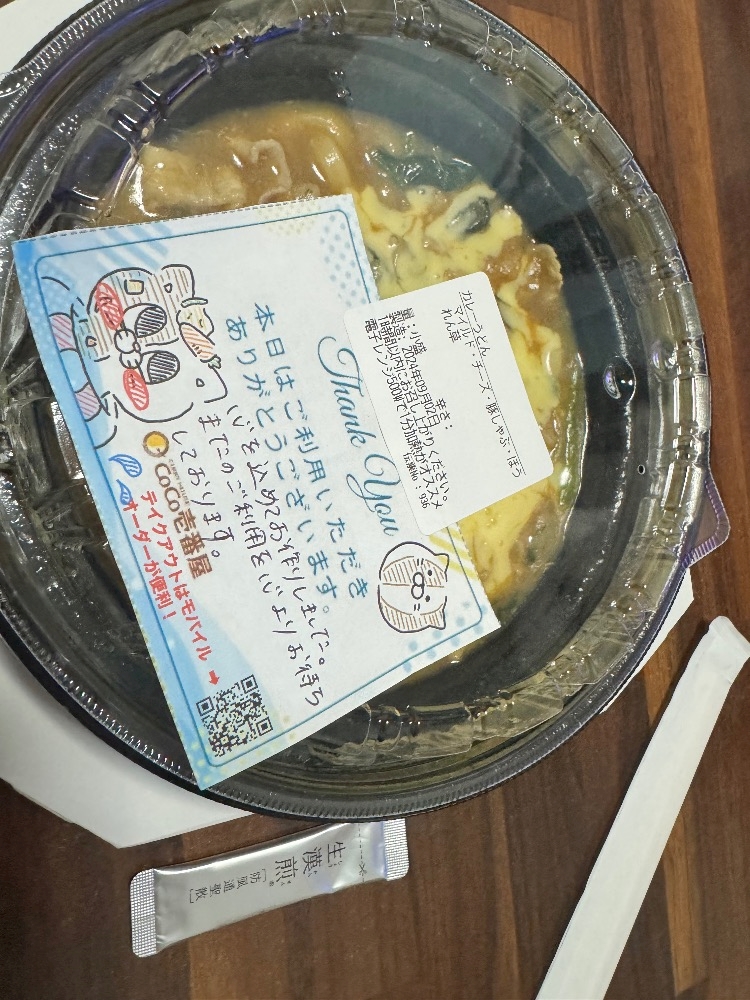 Thank You
本日はご利用いただき
ありがとうございます。
心を込めてお作りしました。
またのご利用を心よりお待ち
しております。
CoCo壱番屋
テイクアウトはモバイル
オーダーが便利！
カレーうどん
マイルド・チーズ・豚しゃぶ・ほう
れん草
辛さ：
量：小盛
製造：2024年09月02日
1時間以内にお召し上がりください。
電子レンジ500Wで1分加熱がオススメ
伝票No：936
生漢煎
防風通聖散